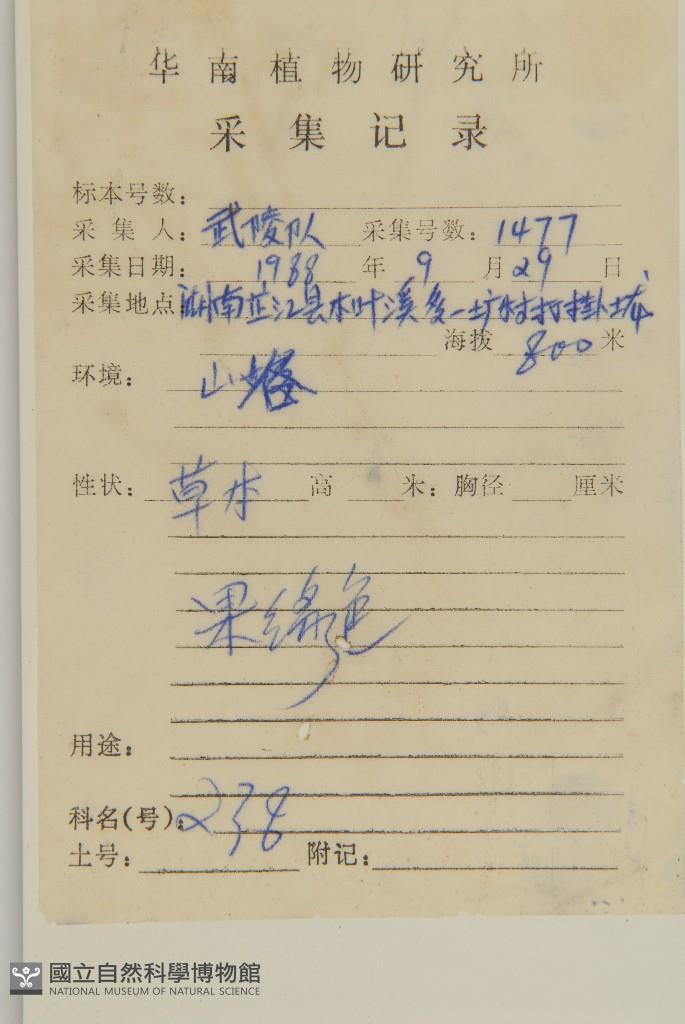 华南植物研究所
采集记录
标本号数:
采集人: 武陵队 采集号数: 1477
采集日期: 1988 年 9 月 29 日
采集地点: 湖南芷江县木叶溪乡一圹村打卦
海拔 800 米
环境: 山
性状: 草本 高 米: 胸径 厘米
果绿色
用途:
科名(号): 238
土号: 附记:
國立自然科學博物館
NATIONAL MUSEUM OF NATURAL SCIENCE